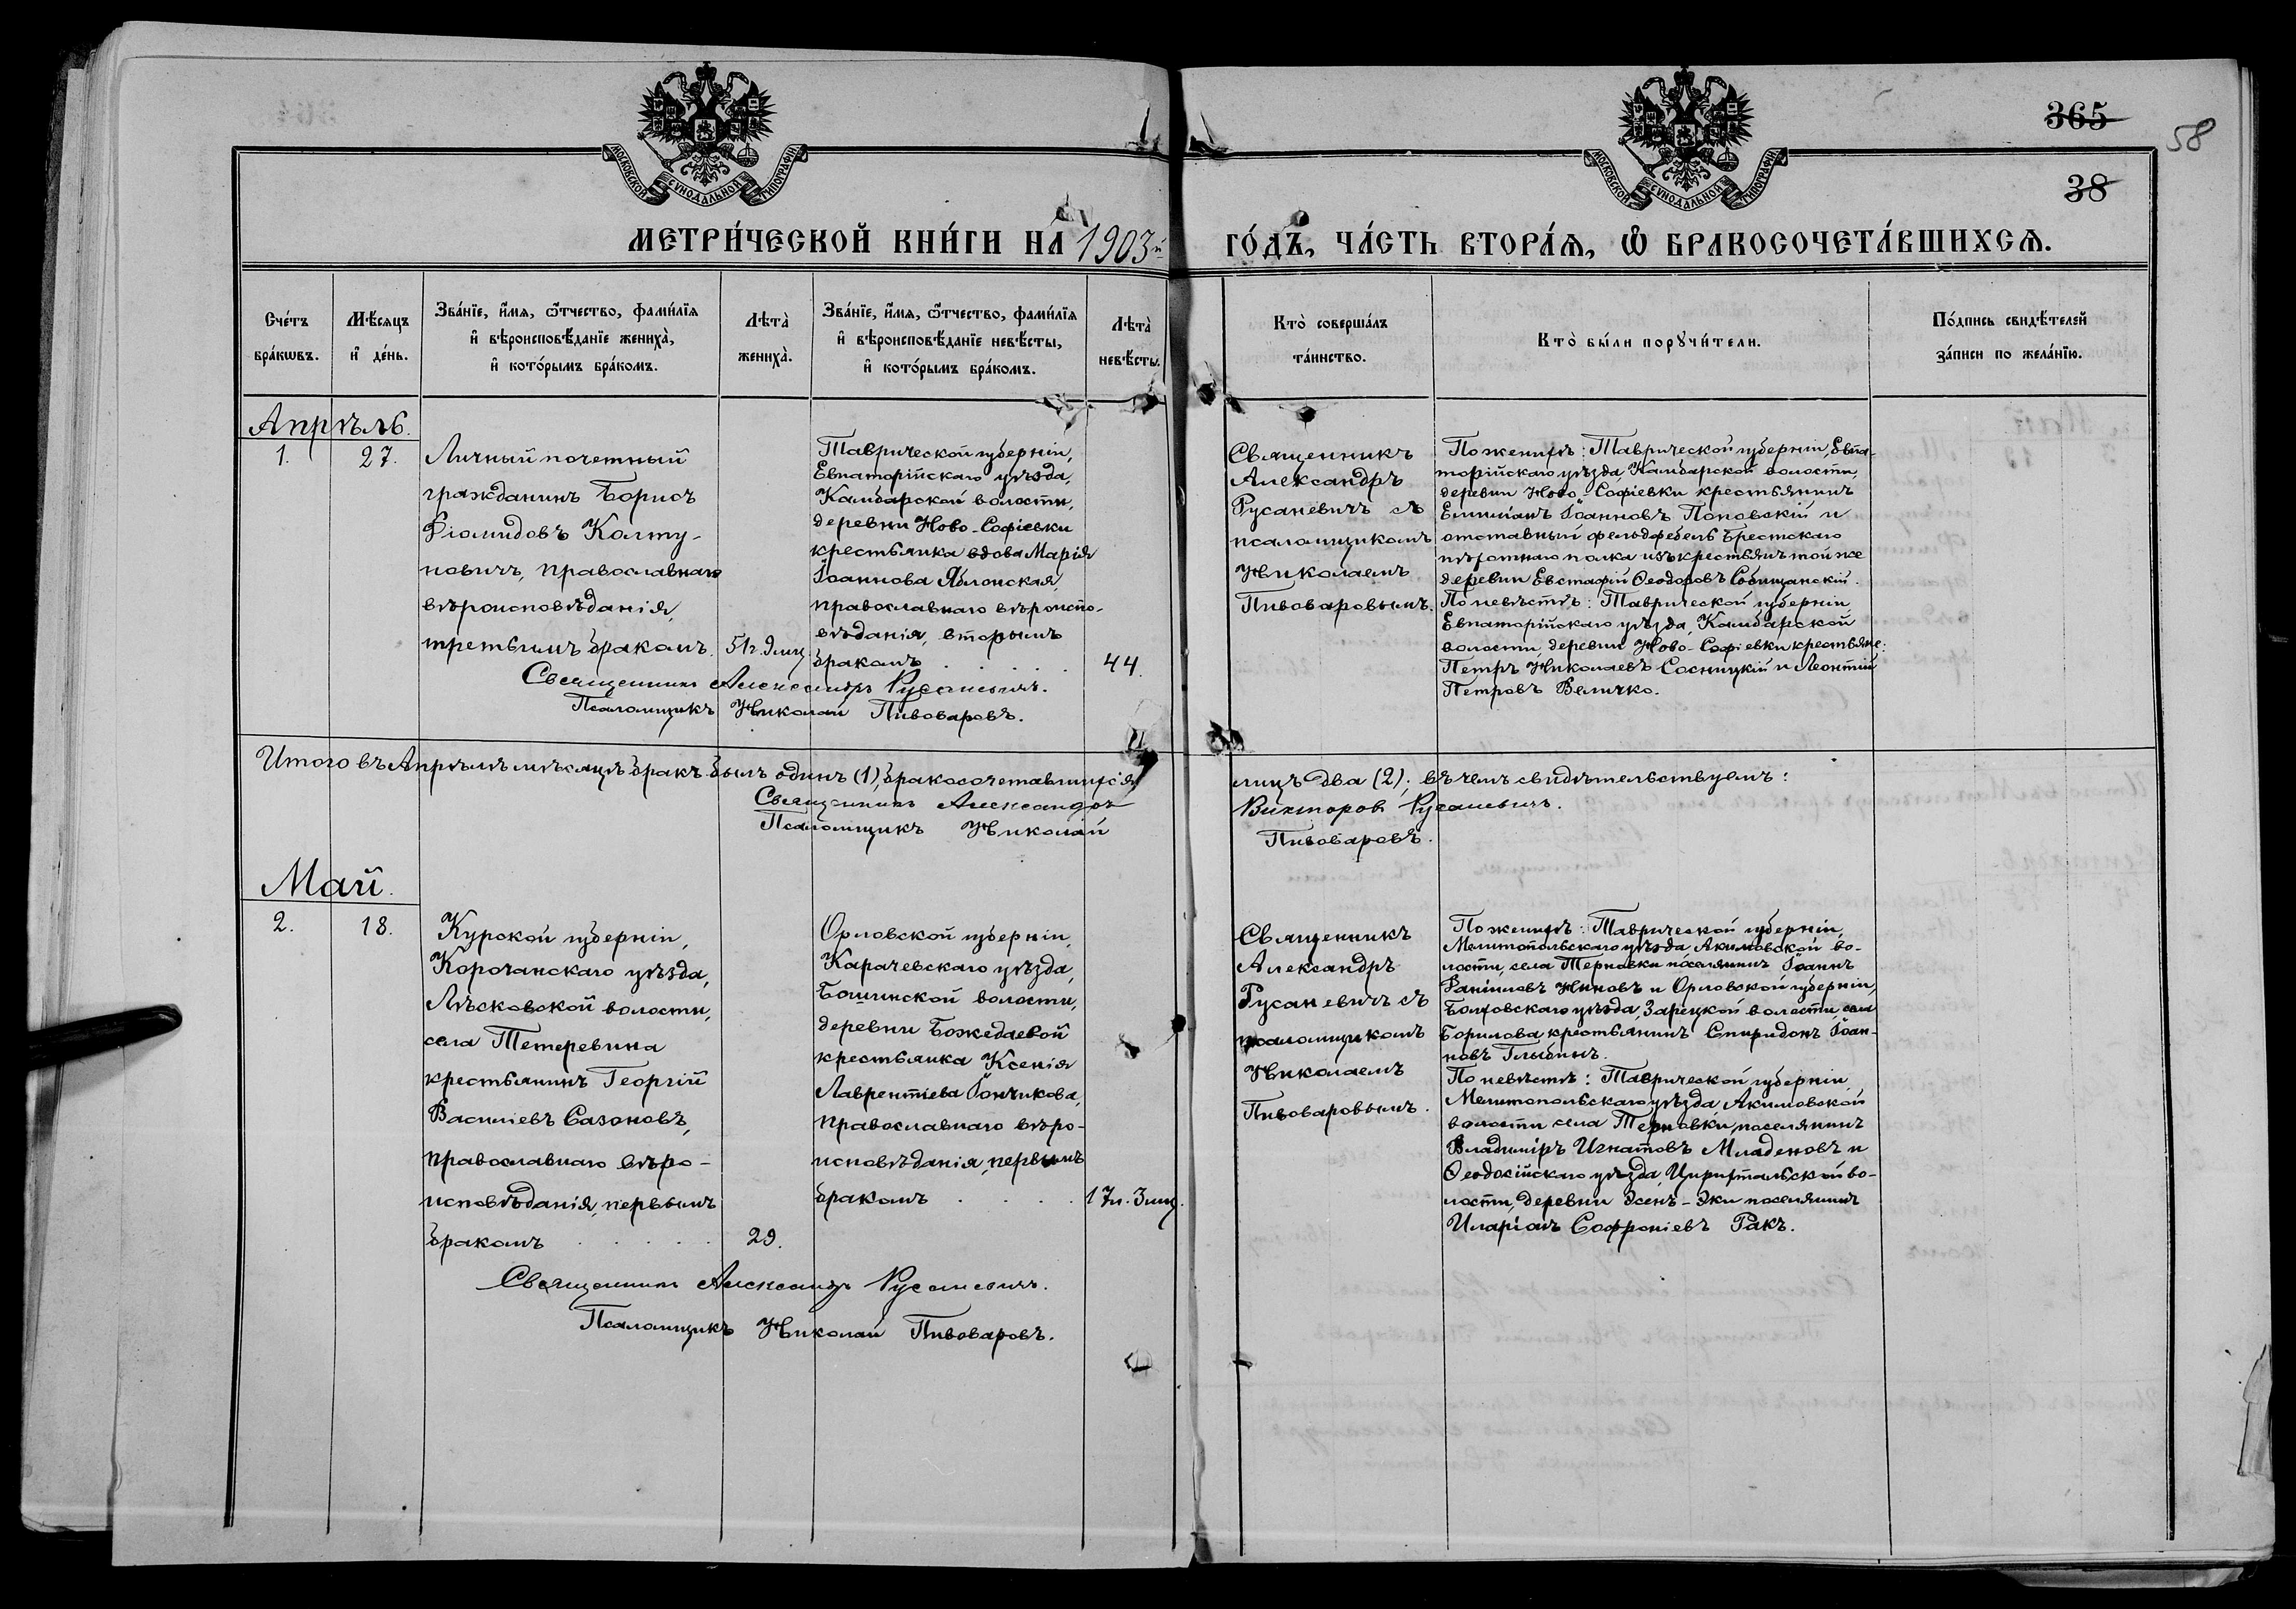 365
58
38
МОСКОВСКОЙ СѴНОДАЛЬНОЙ ТИПОГРАФІИ
МОСКОВСКОЙ СѴНОДАЛЬНОЙ ТИПОГРАФІИ
МЕТРИ́ЧЕСКОЙ КНИ́ГИ НА 1903й ГО́ДЪ, ЧА́СТЬ ВТОРА́Я, Ѽ БРАКОСОЧЕТА́ВШИХСЯ.
Сче́тъ
бра́кωвъ.
Мѣ́сяцъ
и҆ де́нь.
Зва́нїе, и҆́мя, ѻ҆́тчество, фами́лїя
и҆ вѣроисповѣ́данїе жениха̀,
и҆ кото́рымъ бра́комъ.
Лѣта̀
жениха̀.
Зва́нїе, и҆́мя, ѻ҆́тчество, фами́лїя
и҆ вѣроисповѣ́данїе невѣ́сты,
и҆ кото́рымъ бра́комъ.
Лѣта̀
невѣ́сты.
Кто̀ соверша́лъ
та́инство.
Кто̀ бы́ли порꙋчи́тели.
По́дпись свидѣ́телей
за́писи по жела́нїю.
Апрѣль.
1.
27.
Личный почетный
гражданинъ Борисъ
Діомидовъ Колту-
новичъ, православнаго
вѣроисповѣданія,
третьимъ бракомъ.
51 г. 9 мц.
Таврической губерніи,
Евпаторійскаго уѣзда,
Камбарской волости,
деревни Ново-Софіевки
крестьянка вдова Марія
Іоаннова Яблонская,
православнаго вѣроиспо-
вѣданія, вторымъ
бракомъ . . . . .
44.
Священникъ
Александръ
Русаневичъ съ
псаломщикомъ
Николаемъ
Пивоваровымъ.
По женихѣ: Таврической губерніи, Евпа-
торійскаго уѣзда, Камбарской волости,
деревни Ново-Софіевки крестьянинъ
Емиліанъ Іоанновъ Поповскій и
отставный фельдфебель Брестскаго
пѣхотнаго полка изъ крестьянъ той же
деревни Евстафій Ѳеодоровъ Собищанскій.
По невѣстѣ: Таврической губерніи,
Евпаторійскаго уѣзда, Камбарской
волости, деревни Ново-Софіевки крестьяне:
Петръ Николаевъ Сосницкій и Леонтій
Петровъ Величко.
Священникъ Александръ Русаневичъ.
Псаломщикъ Николай Пивоваровъ.
Итого въ Апрѣлѣ мѣсяцѣ бракъ былъ одинъ (1), бракосочетавшихся лицъ два (2); въ чемъ свидѣтельствуемъ:
Священникъ Александръ Викторовъ Русаневичъ.
Псаломщикъ Николай Пивоваровъ.
Май.
2.
18.
Курской губерніи,
Корочанскаго уѣзда,
Лѣсковской волости,
села Тетеревина
крестьянинъ Георгій
Василіевъ Сазоновъ,
православнаго вѣро-
исповѣданія, первымъ
бракомъ . . . . .
29.
Орловской губерніи,
Карачевскаго уѣзда,
Бошинской волости,
деревни Божедаевой
крестьянка Ксенія
Лаврентіева Іончикова,
православнаго вѣро-
исповѣданія, первымъ
бракомъ . . . .
17 л. 3 мц.
Священникъ
Александръ
Русаневичъ съ
псаломщикомъ
Николаемъ
Пивоваровымъ.
По женихѣ: Таврической губерніи,
Мелитопольскаго уѣзда Акимовской во-
лости, села Терновки поселянинъ Іоаннъ
Даніиловъ Ниновъ и Орловской губерніи,
Болховскаго уѣзда, Зарецкой волости, села
Борилова крестьянинъ Спиридонъ Іоан-
новъ Глыбинъ.
По невѣстѣ: Таврической губерніи,
Мелитопольскаго уѣзда, Акимовской
волости села Терновки, поселянинъ
Владиміръ Игнатовъ Младеновъ и
Ѳеодосійскаго уѣзда, Цюрихтальской во-
лости, деревни Эсенъ-Эки поселянинъ
Иларіонъ Софроніевъ Ракъ.
Священникъ Александръ Русаневичъ.
Псаломщикъ Николай Пивоваровъ.